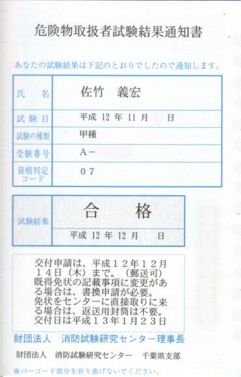 危険物取扱者試験結果通知書
あなたの試験結果は下記のとおりでしたので通知します。
氏名 佐竹 義宏
試験日 平成 12 年 11 月 日
試験の種類 甲種
受験番号 A-
資格判定コード 07
試験結果 合格
平成 12 年 12 月 日
交付申請は、平成12年12月
14日(木)まで。(郵送可)
既得免状の記載事項に変更があ
る場合は、書換申請が必要。
免状をセンターに直接取りに来
る場合は、返送用封筒は不要。
交付日は平成13年1月23日
財団法人 消防試験研究センター理事長
財団法人 消防試験研究センター 千葉県支部
※バーコード部分を折り曲げないでください。